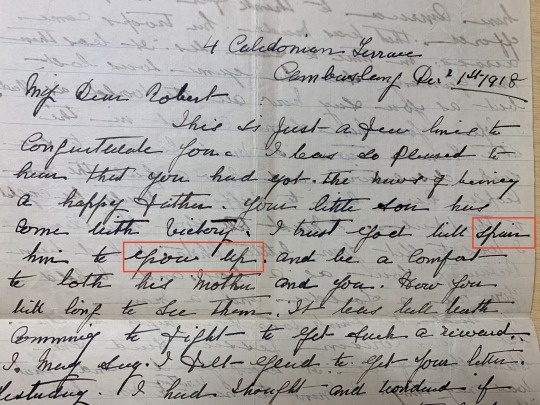 4 Caledonian Terrace
Cambuslang Decr 1st 1918
My Dear Robert
This is Just a few lines to
Congratulate you. I was so pleased to
hear that you had got the news of being
a happy Father. your little son has
come with Victory. I trust God will spair
him to grow up. and be a comfort
to both his Mother and you. How you
will long to see them. It was well worth
comming to fight to get such a reward.
I May Say. I felt glad to get your letter.
Yesterday. I had thought and wondred if